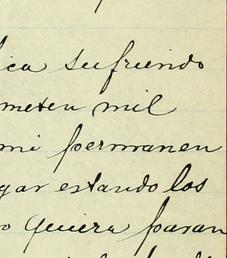 ica sufriendo
meten mil
mi permanen
gar estando los
o quiera pasan